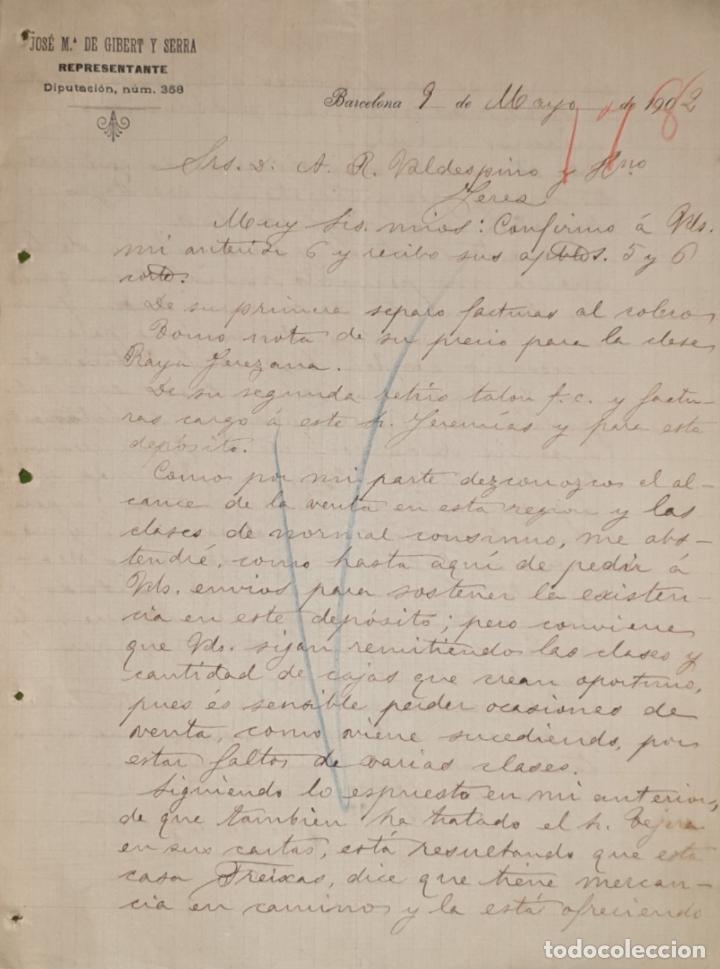 JOSÉ M.ª DE GIBERT Y SERRA
REPRESENTANTE
Diputación, núm. 358
Barcelona 9 de Mayo de 1902
Srs. D. A. R. Valdespino y Hno
Jerez
Muy Srs. mios: Confirmo á Vds.
mi anterior 6 y recibo sus aptbles. 5 y 6
corte.
De su primera separo facturas al
Domo nota de su precio para la clase
Raya Jerezana.
De su segunda retiro talon f.c. y factu-
ras cargo á este h. Jeremías y para este
depósito.
Como por mi parte dezconozcos el al-
cance de la venta en esta region y las
clases de normal consumo, me abs-
tendré, como hasta aquí de pedir á
Vds. envios para sostener la existen-
cia en este depósito; pero conviene
que Vds. sigan remitiendo las clases y
cantidad de cajas que crean oportuno,
pues és sensible perder ocasiones de
venta, como viene sucediendo, por
estar faltos de varias clases.
Siguiendo lo espuesto en mi anterior,
de que tambien ha tratado el h.
en sus cartas, está resultando que esta
casa Freixas, dice que tiene mercan-
cia en camino y la está ofreciendo
todocoleccion.net